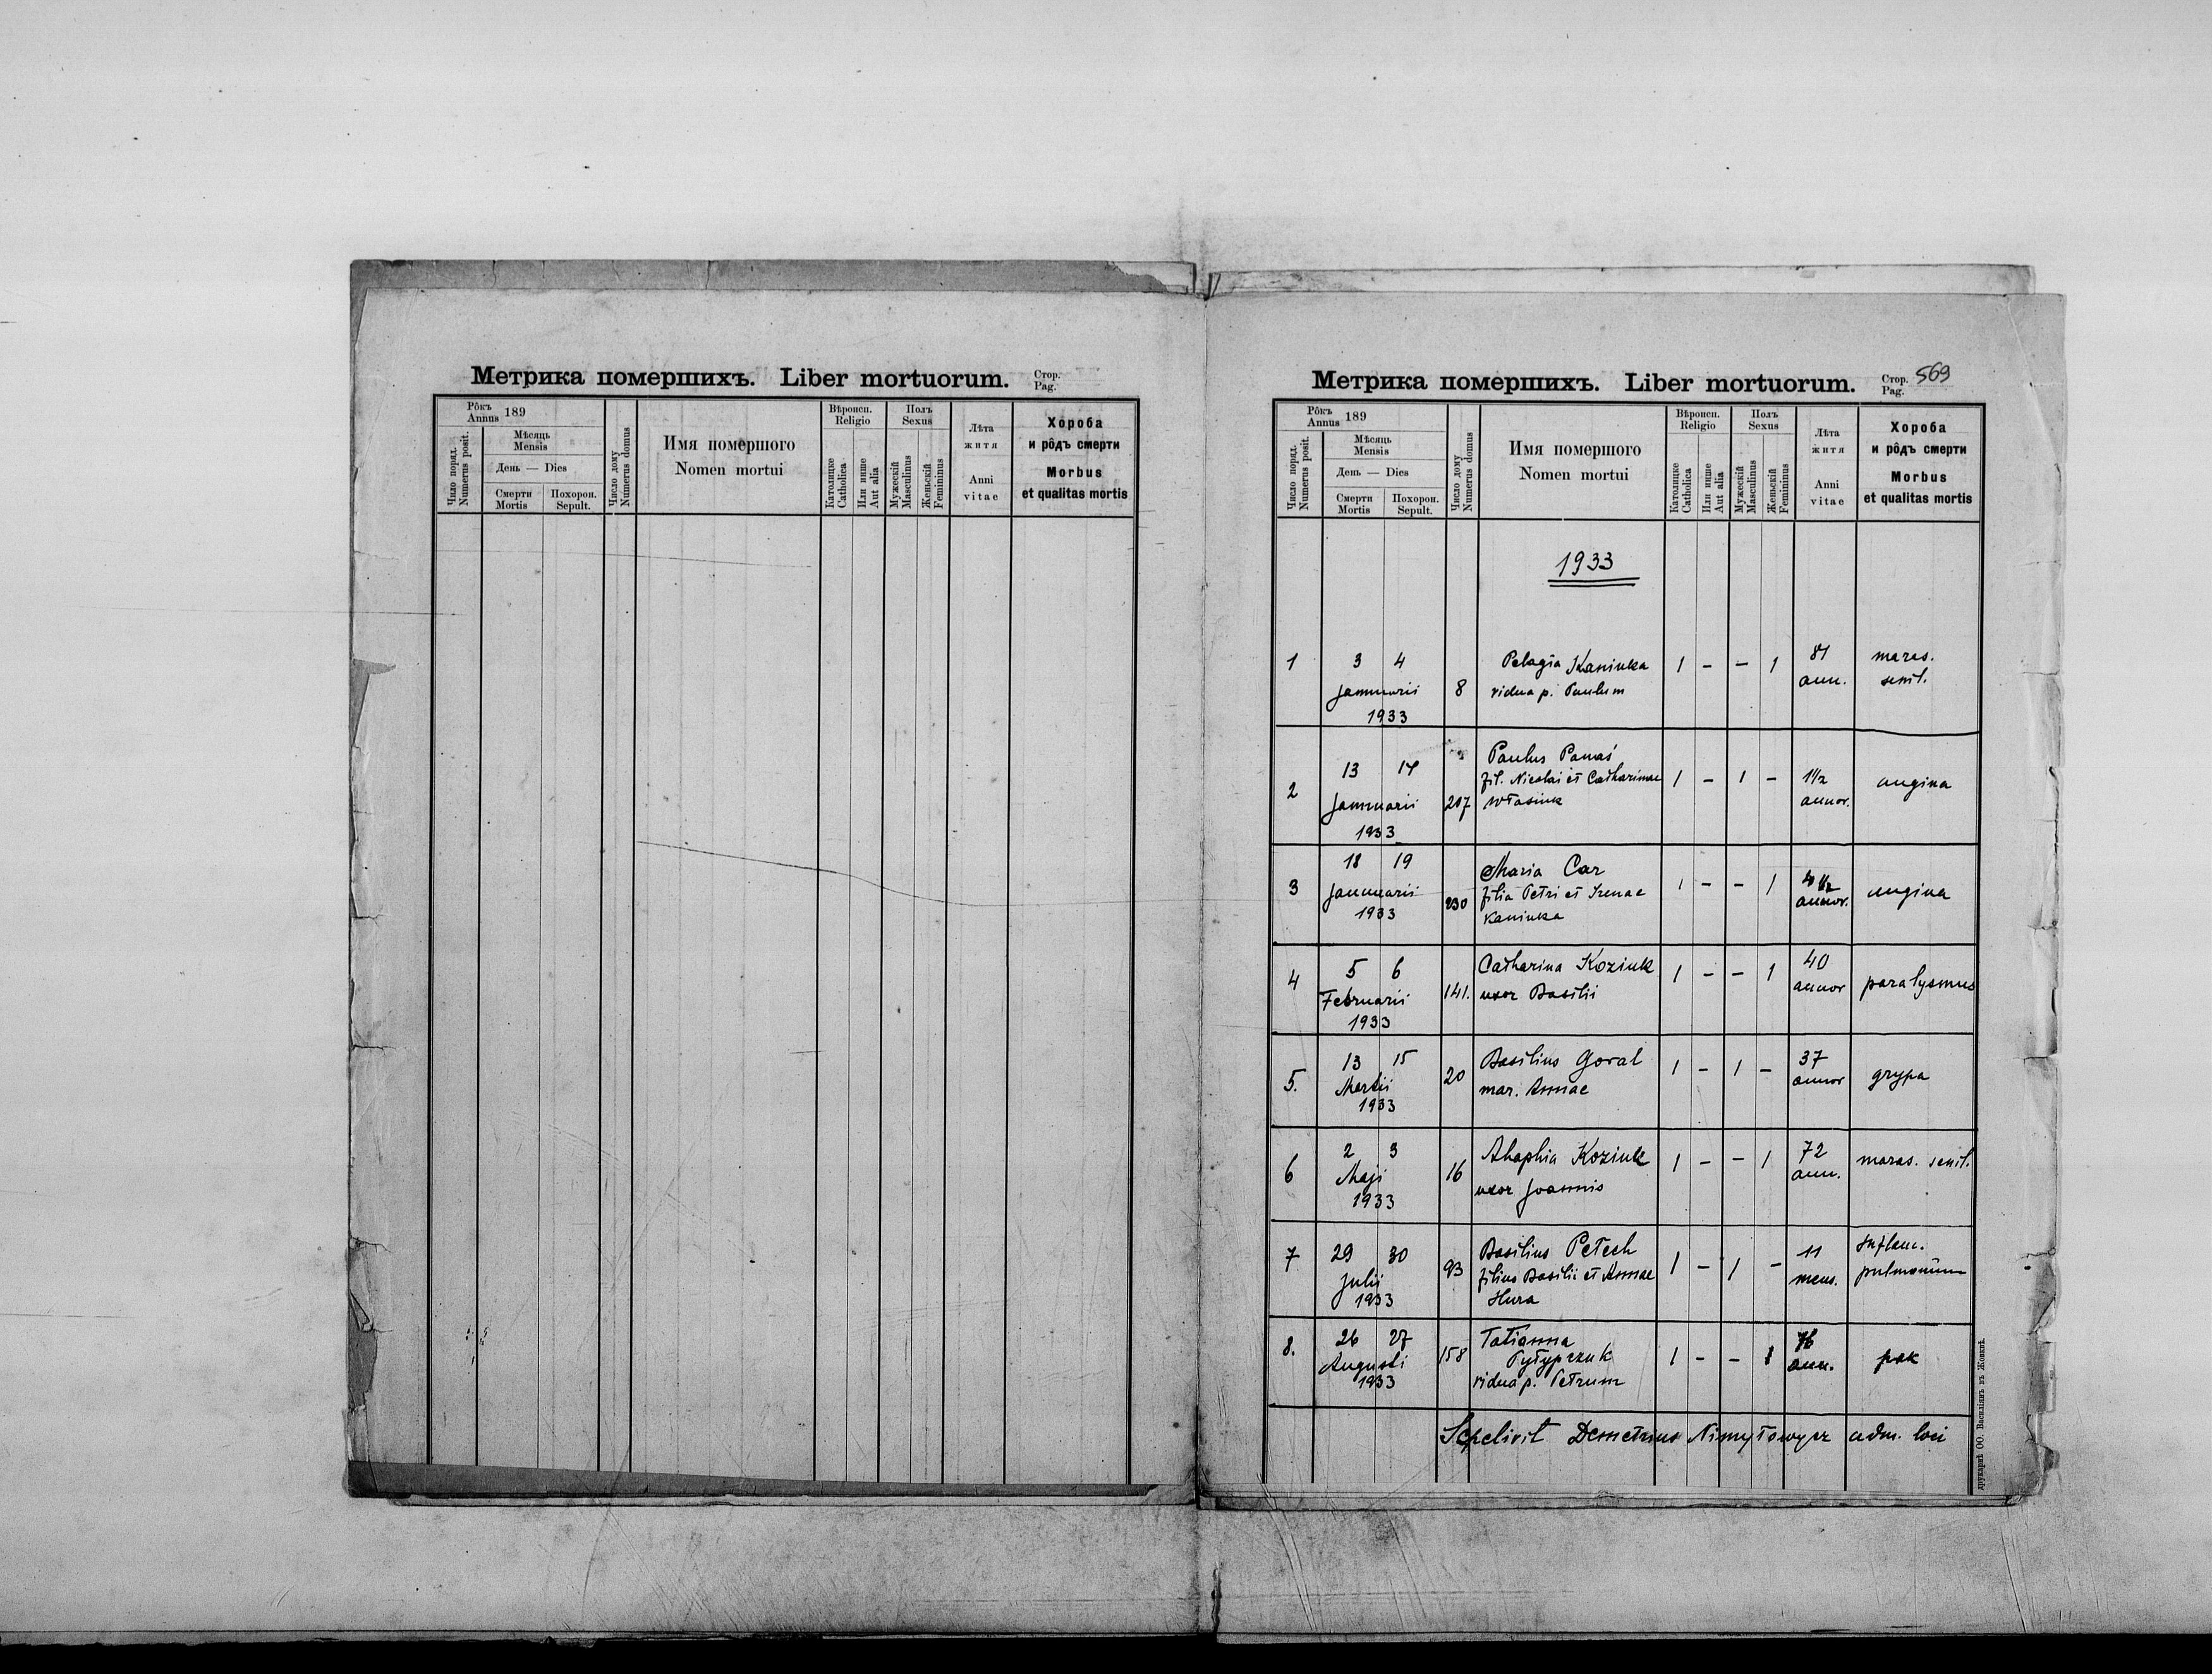 Метрика помершихъ. Liber mortuorum. Стор. Pag.
Рôкъ Annus 189
Число поряд. Numerus posit.
Мѣсяць Mensis
День — Dies
Смерти Mortis
Похорон. Sepult.
Число дому Numerus domus
Имя помершого Nomen mortui
Вѣроисп. Religio
Католицке Catholica
Или инше Aut alia
Полъ Sexus
Мужескій Masculinus
Женьскій Femininus
Лѣта житя Anni vitae
Хороба и рôдъ смерти Morbus et qualitas mortis
Метрика помершихъ. Liber mortuorum. Стор. Pag. 569
Рôкъ Annus 189
Число поряд. Numerus posit.
Мѣсяць Mensis
День — Dies
Смерти Mortis
Похорон. Sepult.
Число дому Numerus domus
Имя помершого Nomen mortui
Вѣроисп. Religio
Католицке Catholica
Или инше Aut alia
Полъ Sexus
Мужескій Masculinus
Женьскій Femininus
Лѣта житя Anni vitae
Хороба и рôдъ смерти Morbus et qualitas mortis
1933
1 3 4 Pelagia Kaniuka 1 – – 1 81 maras.
Januarii 8 vidua p. Paulum ann. senil.
1933
Paulus Panaś
2 13 14 fil. Nicolai et Catharinae 1 – 1 – 1 1/2 angina
Januarii 207 Własiuk annor.
1933
18 19 Maria Car
3 Januarii 230 filia Petri et Irenae 1 – – 1 4 1/2 annor. angina
1933 Kaniuka
4 5 6 Catharina Koziuk 1 – – 1 40
Februarii 141. uxor Basilii annor paralysmus
1933
5. 13 15 20 Basilius Goral 1 – 1 – 37
Martii mar. Annae annor grypa
1933
6 2 3 16 Ahaphia Koziuk 1 – – 1 72 maras. senil.
Maji uxor Joannis ann.
1933
7 29 30 93 Basilius Petech 1 – 1 – 11 Inflam.
Julii filius Basilii et Annae mens. pulmonum
1933 Hura
8. 26 27 158 Tatianna 1 – – 1 76
Augusti Pyłypczuk ann. рак
1933 vidua p. Petrum
Sepelivit Demetrius Nimyłowycz adm. loci
друкарнѣ ОО. Василіянъ въ Жовквѣ.